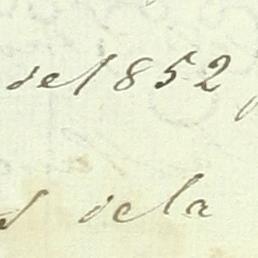 del 1852
de la